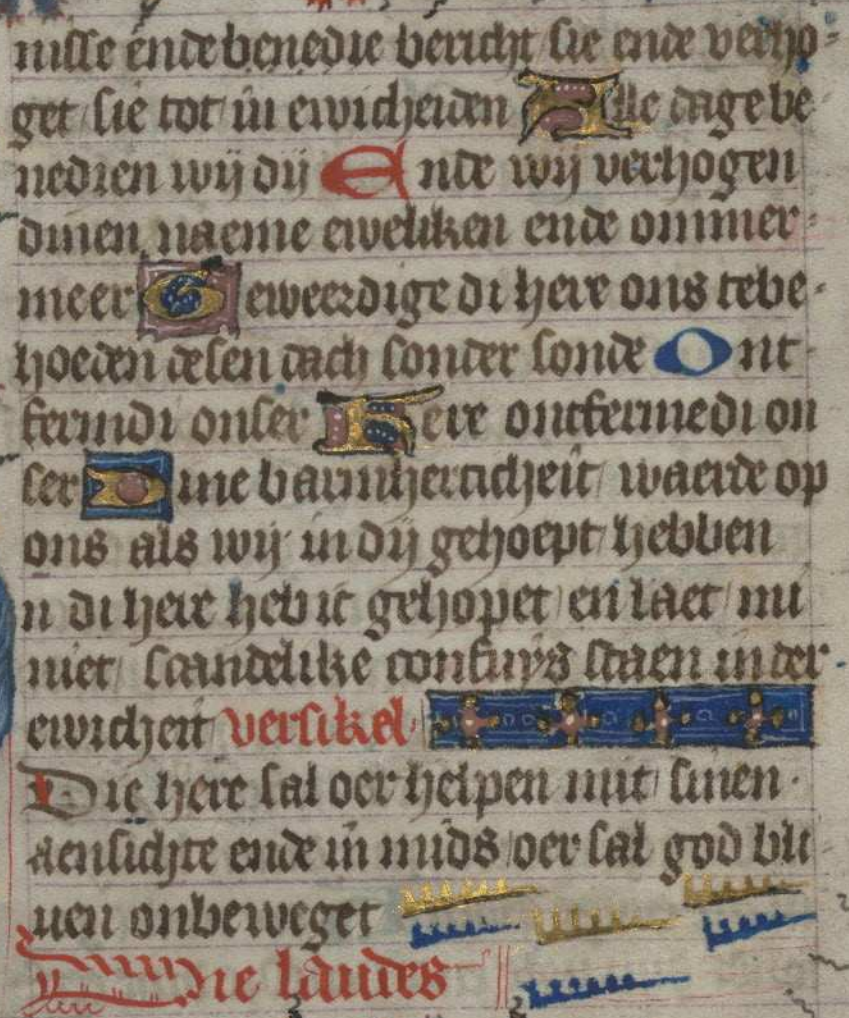 nisse ende benedie bericht sie ende verho
get sie tot in ewicheiden Alle dage be
nedien wij dij Ende wij verhogen
dinen naeme eweliken ende ommer
meer Geweerdige di here ons tebe
hoeden desen dach sonder sonde Ont
fermdi onser Here ontfermedi on
ser Dine barmherticheit waerde op
ons als wij in dij gehoept hebben
n di here heb ic gehopet en laet mi
niet scandelike confuys staen inder
ewicheit versikel
Die here sal oer helpen mit sinen
aensichte ende in mids oer sal god bli
uen onbeweget
Die laudes